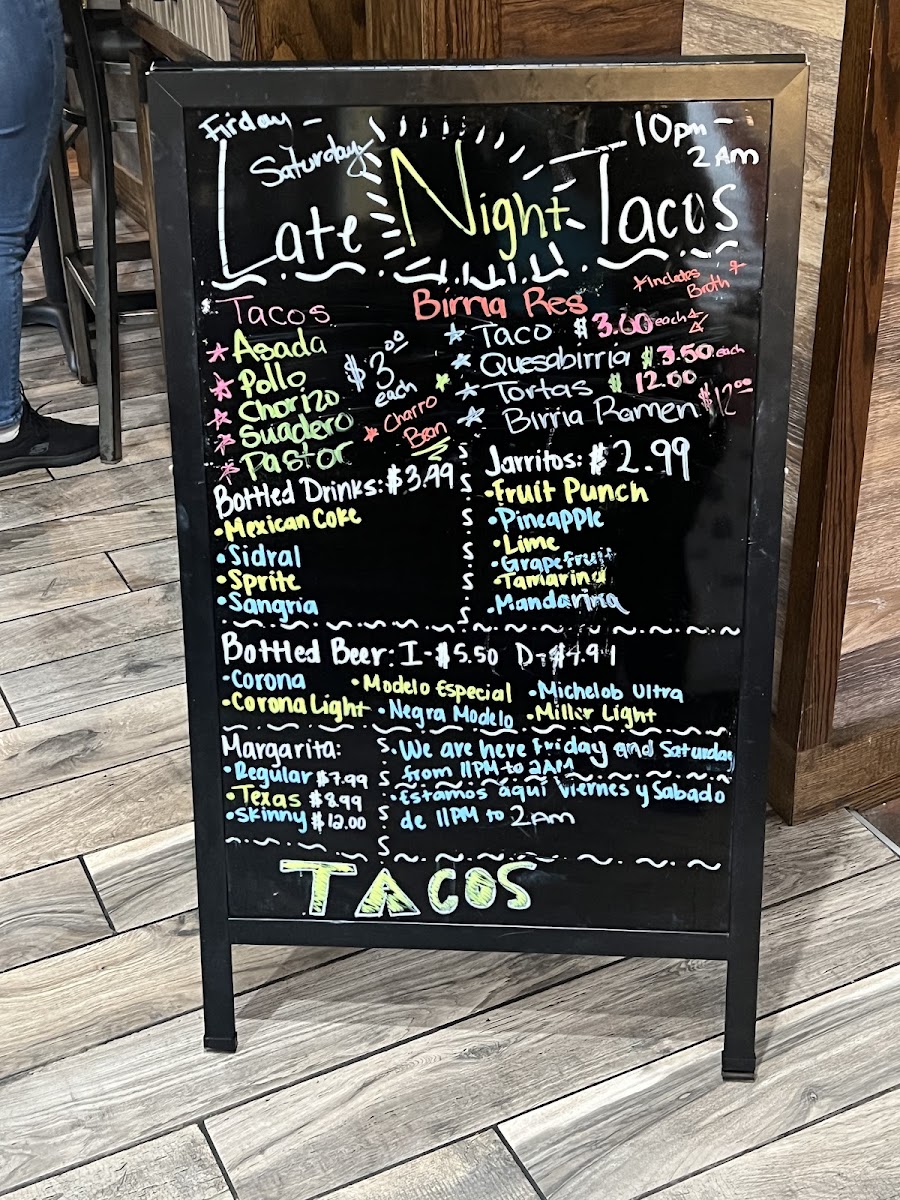 Firday - 10pm -
Saturday 2 AM
Late Night Tacos
Tacos
Asada
Pollo
Chorizo
Suadero
Pastor
$3.00 each
Charro Bean
Birria Res
*Includes Broth*
Taco $3.00 each
Quesabirria $3.50 each
Tortas $12.00
Birria Ramen $12.00
Bottled Drinks: $3.99
Mexican Coke
Sidral
Sprite
Sangria
Jarritos: $2.99
Fruit Punch
Pineapple
Lime
Grapefruit
Tamarind
Mandarina
Bottled Beer: I-$5.50 D-
Corona
Modelo Especial
Michelob Ultra
Corona Light
Negra Modelo
Miller Light
Margarita:
Regular $7.99
Texas $8.99
Skinny $12.00
We are here Friday and Saturday
from 11PM to 2AM
Estamos aquí Viernes y Sabado
de 11PM to 2am
TACOS